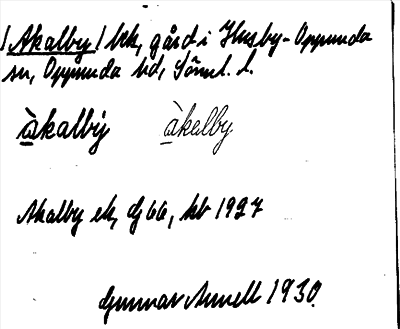 /Akalby/ bek, gård i Husby-Oppunda
sn, Oppunda hd, Söml. l.
àkalby àkalby
Akalby ek, dj 66, kb 1927
Gunnar Annell 1930.